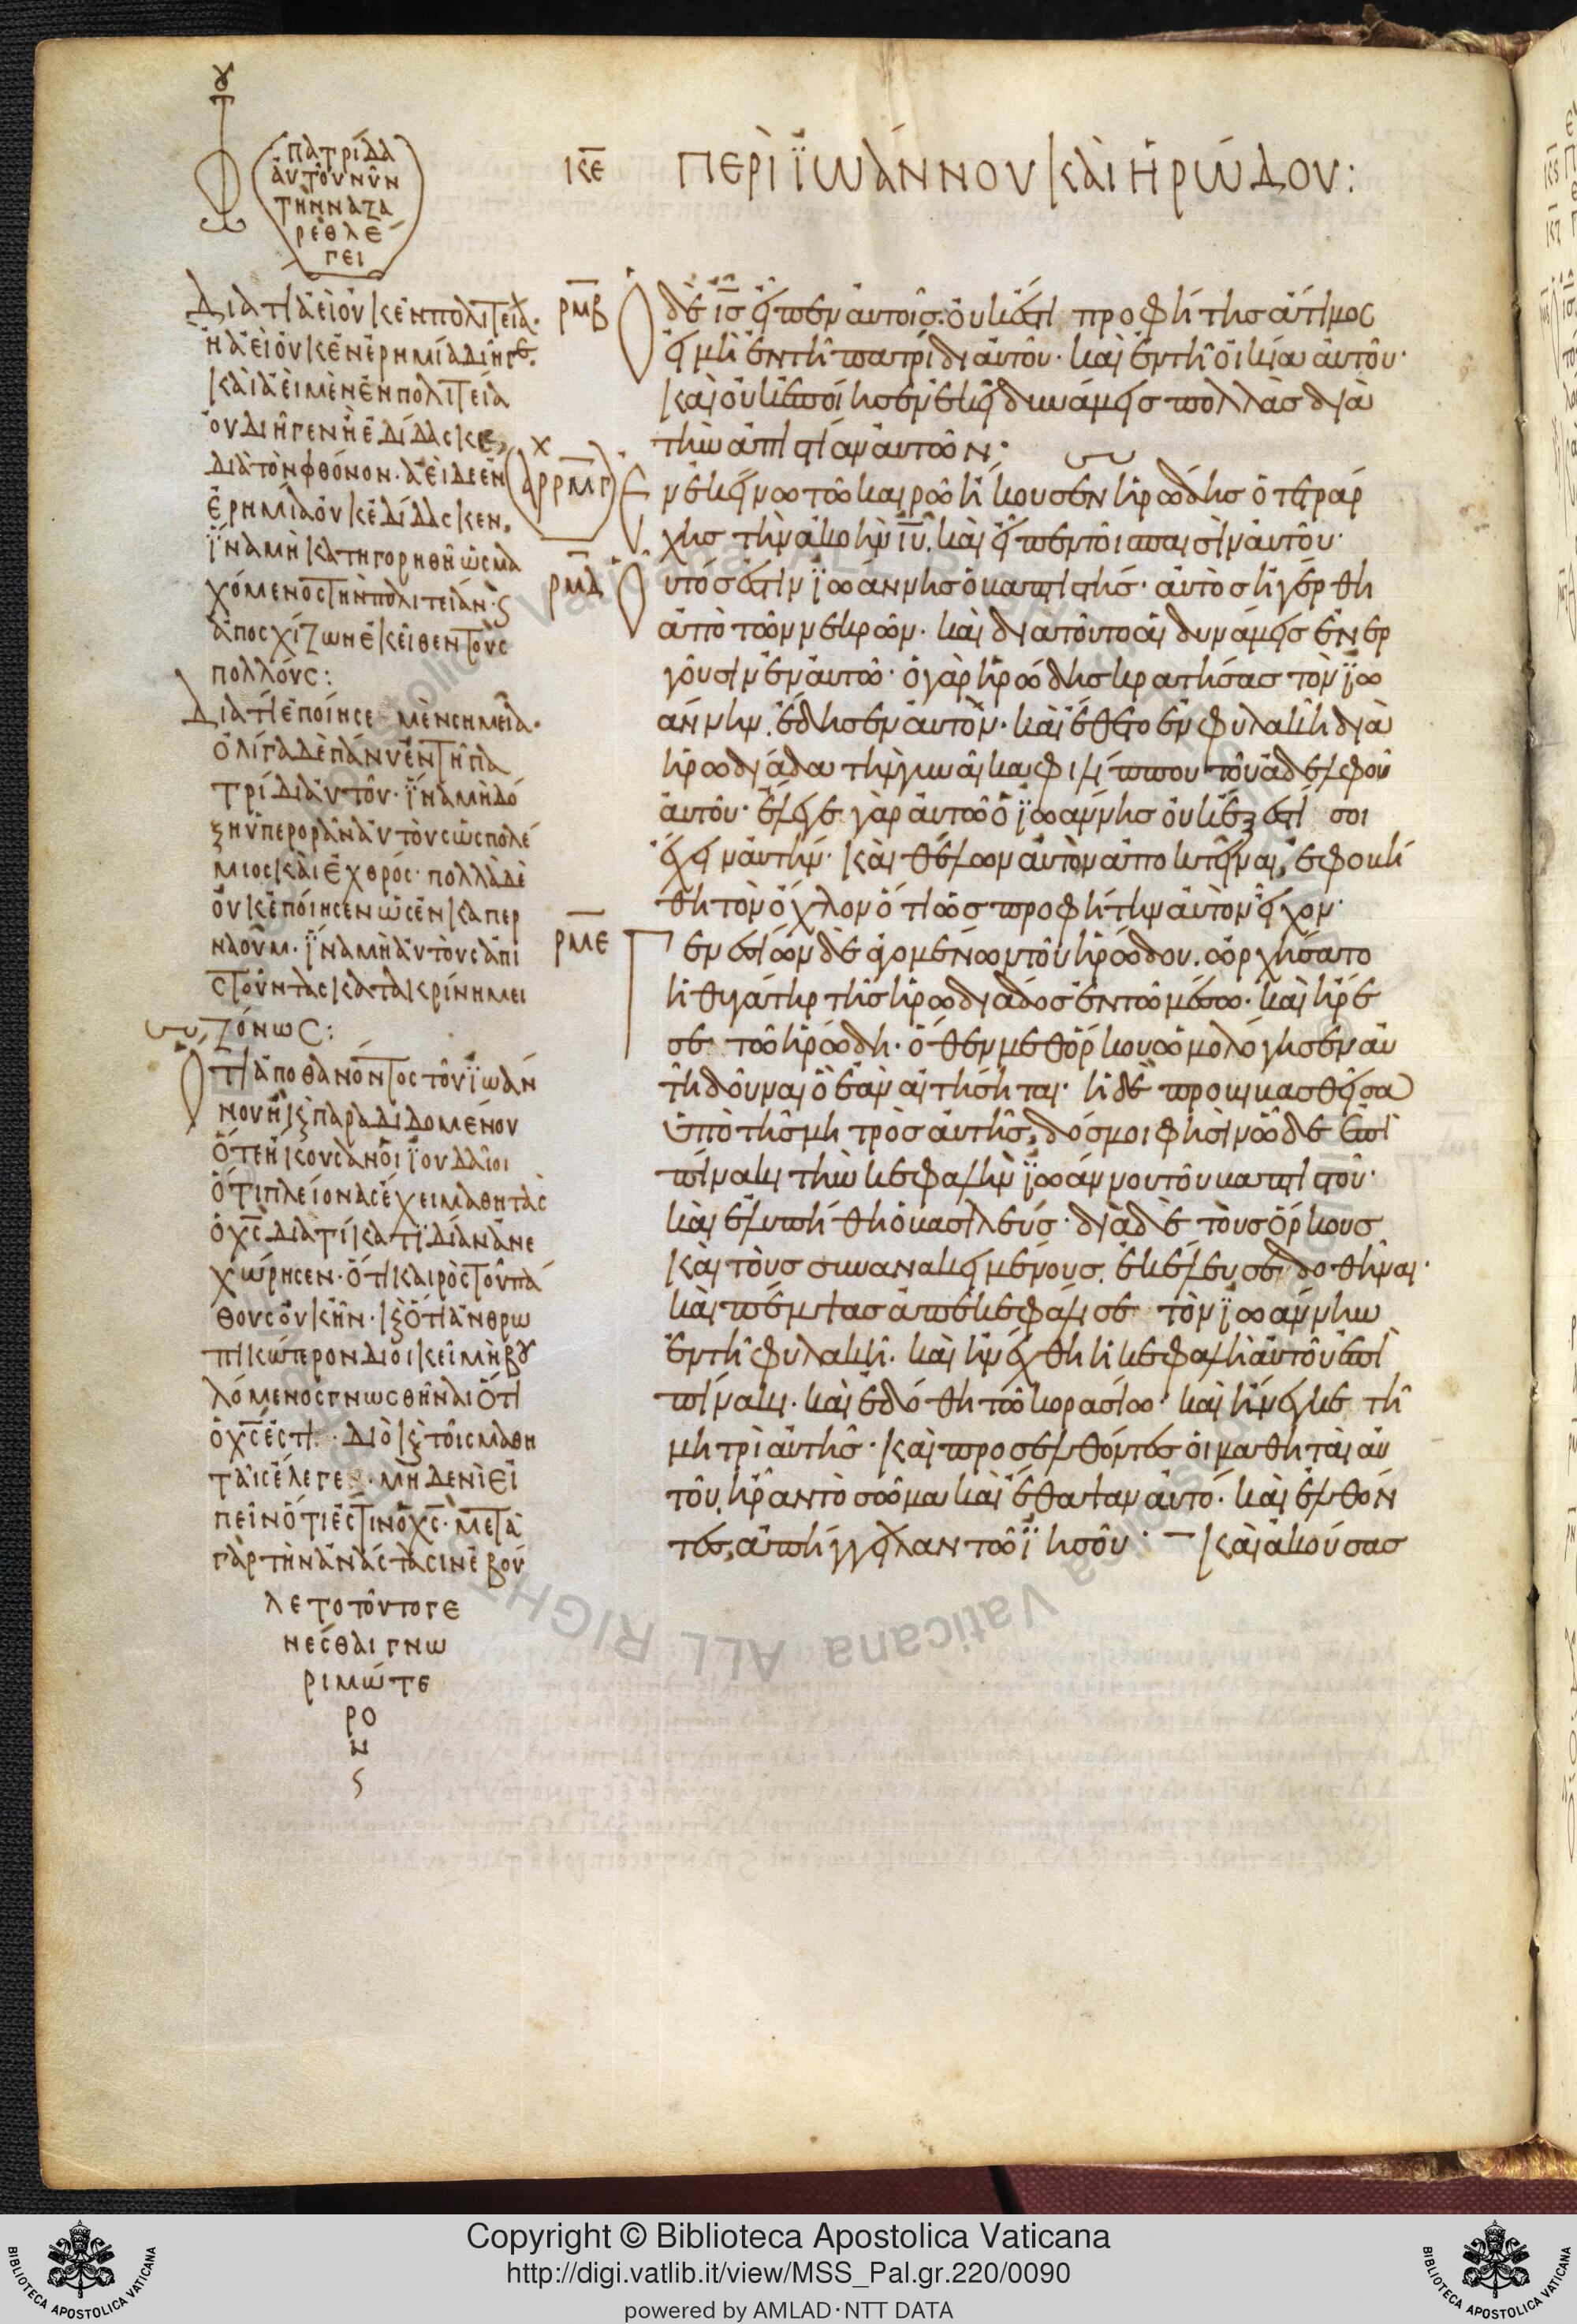 ΠΑΤΡΊΔΑ
ἀυτοῦ νῦν
τὴν ναζα
ρὲθ λέ
γει
κ̅ε̅ ΠΕΡῚ ἸΩΆΝΝΟΥ ΚΑῚ ἩΡΏΔΟΥ:
ρμβ Ὁ δὲ ι̅ς̅ εἶπεν αὐτοῖς· οὐκ ἔστι προφήτης ἄτιμος
εἰ μὴ ἐν τῆ πατρίδι αὐτοῦ· καὶ ἐν τῆ οἰκία αὐτοῦ·
καὶ οὐκ ἐποίησεν ἐκεῖ δυνάμεις πολλὰς διὰ
τὴν ἀπιστίαν αὐτῶν·
ρμγ Ἐν ἐκείνω τῶ καιρῶ ἤκουσεν ἡρώδης ὁ τετράρ
χης τὴν ἀκοὴν ι̅υ̅. καὶ εἶπεν τοῖς παισὶν αὐτοῦ·
ρμδ Οὗτός ἐστιν ἰωάννης ὁ βαπτιστής· αὐτὸς ἠγέρθη
ἀπὸ τῶν νεκρῶν· καὶ διατοῦτο αἱ δυνάμεις ἐνερ
γοῦσιν ἐν αὐτῶ· ὁ γὰρ ἡρώδης κρατήσας τὸν ἰω
άννην. ἔδησεν αὐτὸν· καὶ ἔθετο ἐν φυλακῆ διὰ
ἡρωδιάδα τὴν γυναῖκα φιλίππου τοῦ ἀδελφοῦ
αὐτοῦ· ἔλεγε γὰρ αὐτῶ ὁ ἰωάννης οὐκ ἔξεστί σοι
ἔχειν αὐτήν· καὶ θέλων αὐτὸν ἀποκτεῖναι, ἐφοβή
θη τὸν ὄχλον ὅτι ὡς προφήτην αὐτὸν εἶχον·
ρμε Γενεσίων δὲ ἀγομένων τοῦ ἡρώδου. ὠρχήσατο
ἡ θυγάτηρ τῆς ἡρωδιάδος ἐν τῶ μέσω· καὶ ἤρε
σε τῶ ἡρώδη· ὅθεν μεθόρκου ὡμολόγησεν αὐ
τῆ δοῦναι ὃ ἐὰν αἰτήσηται· ἡ δὲ προβιβασθεῖσα
ὑπὸ τῆς μητρὸς αὐτῆς, δός μοι φησὶν ὧδε ἐπὶ
πίνακι τὴν κεφαλὴν ἰωάννου τοῦ βαπτιστοῦ·
καὶ ἐλυπήθη ὁ βασιλεύς· διὰ δὲ τοὺς ὅρκους
καὶ τοὺς συνανακειμένους. ἐκέλευσε δοθῆναι·
καὶ πέμψας ἀπεκεφάλισε τὸν ἰωάννην
ἐν τῆ φυλακῆ. καὶ ἠνέχθη ἡ κεφαλὴ αὐτοῦ ἐπὶ
πίνακι. καὶ ἐδόθη τῶ κορασίω· καὶ ἤνεγκε τῆ
μητρὶ αὐτῆς· καὶ προσελθόντες οἱ μαθηταὶ αὐ
τοῦ, ἦραν τὸ σῶμα καὶ ἔθαψαν αὐτό· καὶ ἐλθόν
τες, ἀπήγγειλαν τῶ ἰησοῦ· καὶ ἀκούσας
Διατί ἀεὶ οὐκ ἐν πολιτεία.
ἢ ἀεὶ οὐκ ἐν ἐρημία διῆγε.
καὶ ἀεὶ μὲν ἐν πολιτεία
οὐ διῆγεν ἢ ἐδίδασκε,
διὰ τὸν φθόνον. ἀεὶ δὲ ἐν
ἐρημία οὐκ ἐδίδασκεν,
ἵνα μὴ κατηγορηθῆ ὡς μα
χόμενος τὴν πολιτείαν· ς
ἀποσχίζων ἐκεῖθεν τοὺς
πολλούς:
Διατί ἐποίησε μὲν σημεῖα·
ὀλίγα δὲ πάνυ ἐν τῆ πα
τρίδι αὐτοῦ· ἵνα μὴ δό
ξη ὑπερορᾶν αὐτοὺς ὡς πολέ
μιος καὶ ἐχθρός· πολλὰ δὲ
οὐκ ἐποίησεν ὡς ἐν καπερ
ναούμ. ἵνα μὴ αὐτοὺς ἀπι
στοῦντας κατακρίνη μει
ζόνως:
Ὅτι ἀποθανόντος τοῦ ἰωάν
νου ἢ κ παραδιδομένου
ὅτε ἤκουσαν οἱ ἰουδαῖοι
ὅτι πλείονας ἔχει μαθητὰς
ὁ χ̅ς̅ διατί κατιδίαν ἀνε
χώρησεν· ὅτι καιρὸς τοῦ πά
θους οὐκ ἦν· κ ὅτι ἀνθρω
πικώτερον διοικεῖ μὴ βȣ
λόμενος γνωσθῆναι ὅτι
ὁ χ̅ς̅ ἐστι· διὸ κ τοῖς μαθη
ταῖς ἔλεγε· μηδενὶ εἰ
πεῖν ὅτι ἐστὶν ὁ χ̅ς̅· μετὰ
γὰρ τὴν ἀνάστασιν ἐβού
λετο τοῦτο γε
νέσθαι γνω
ριμώτε
ρο
ν
ς
Copyright © Biblioteca Apostolica Vaticana
http://digi.vatlib.it/view/MSS_Pal.gr.220/0090
powered by AMLAD·NTT DATA